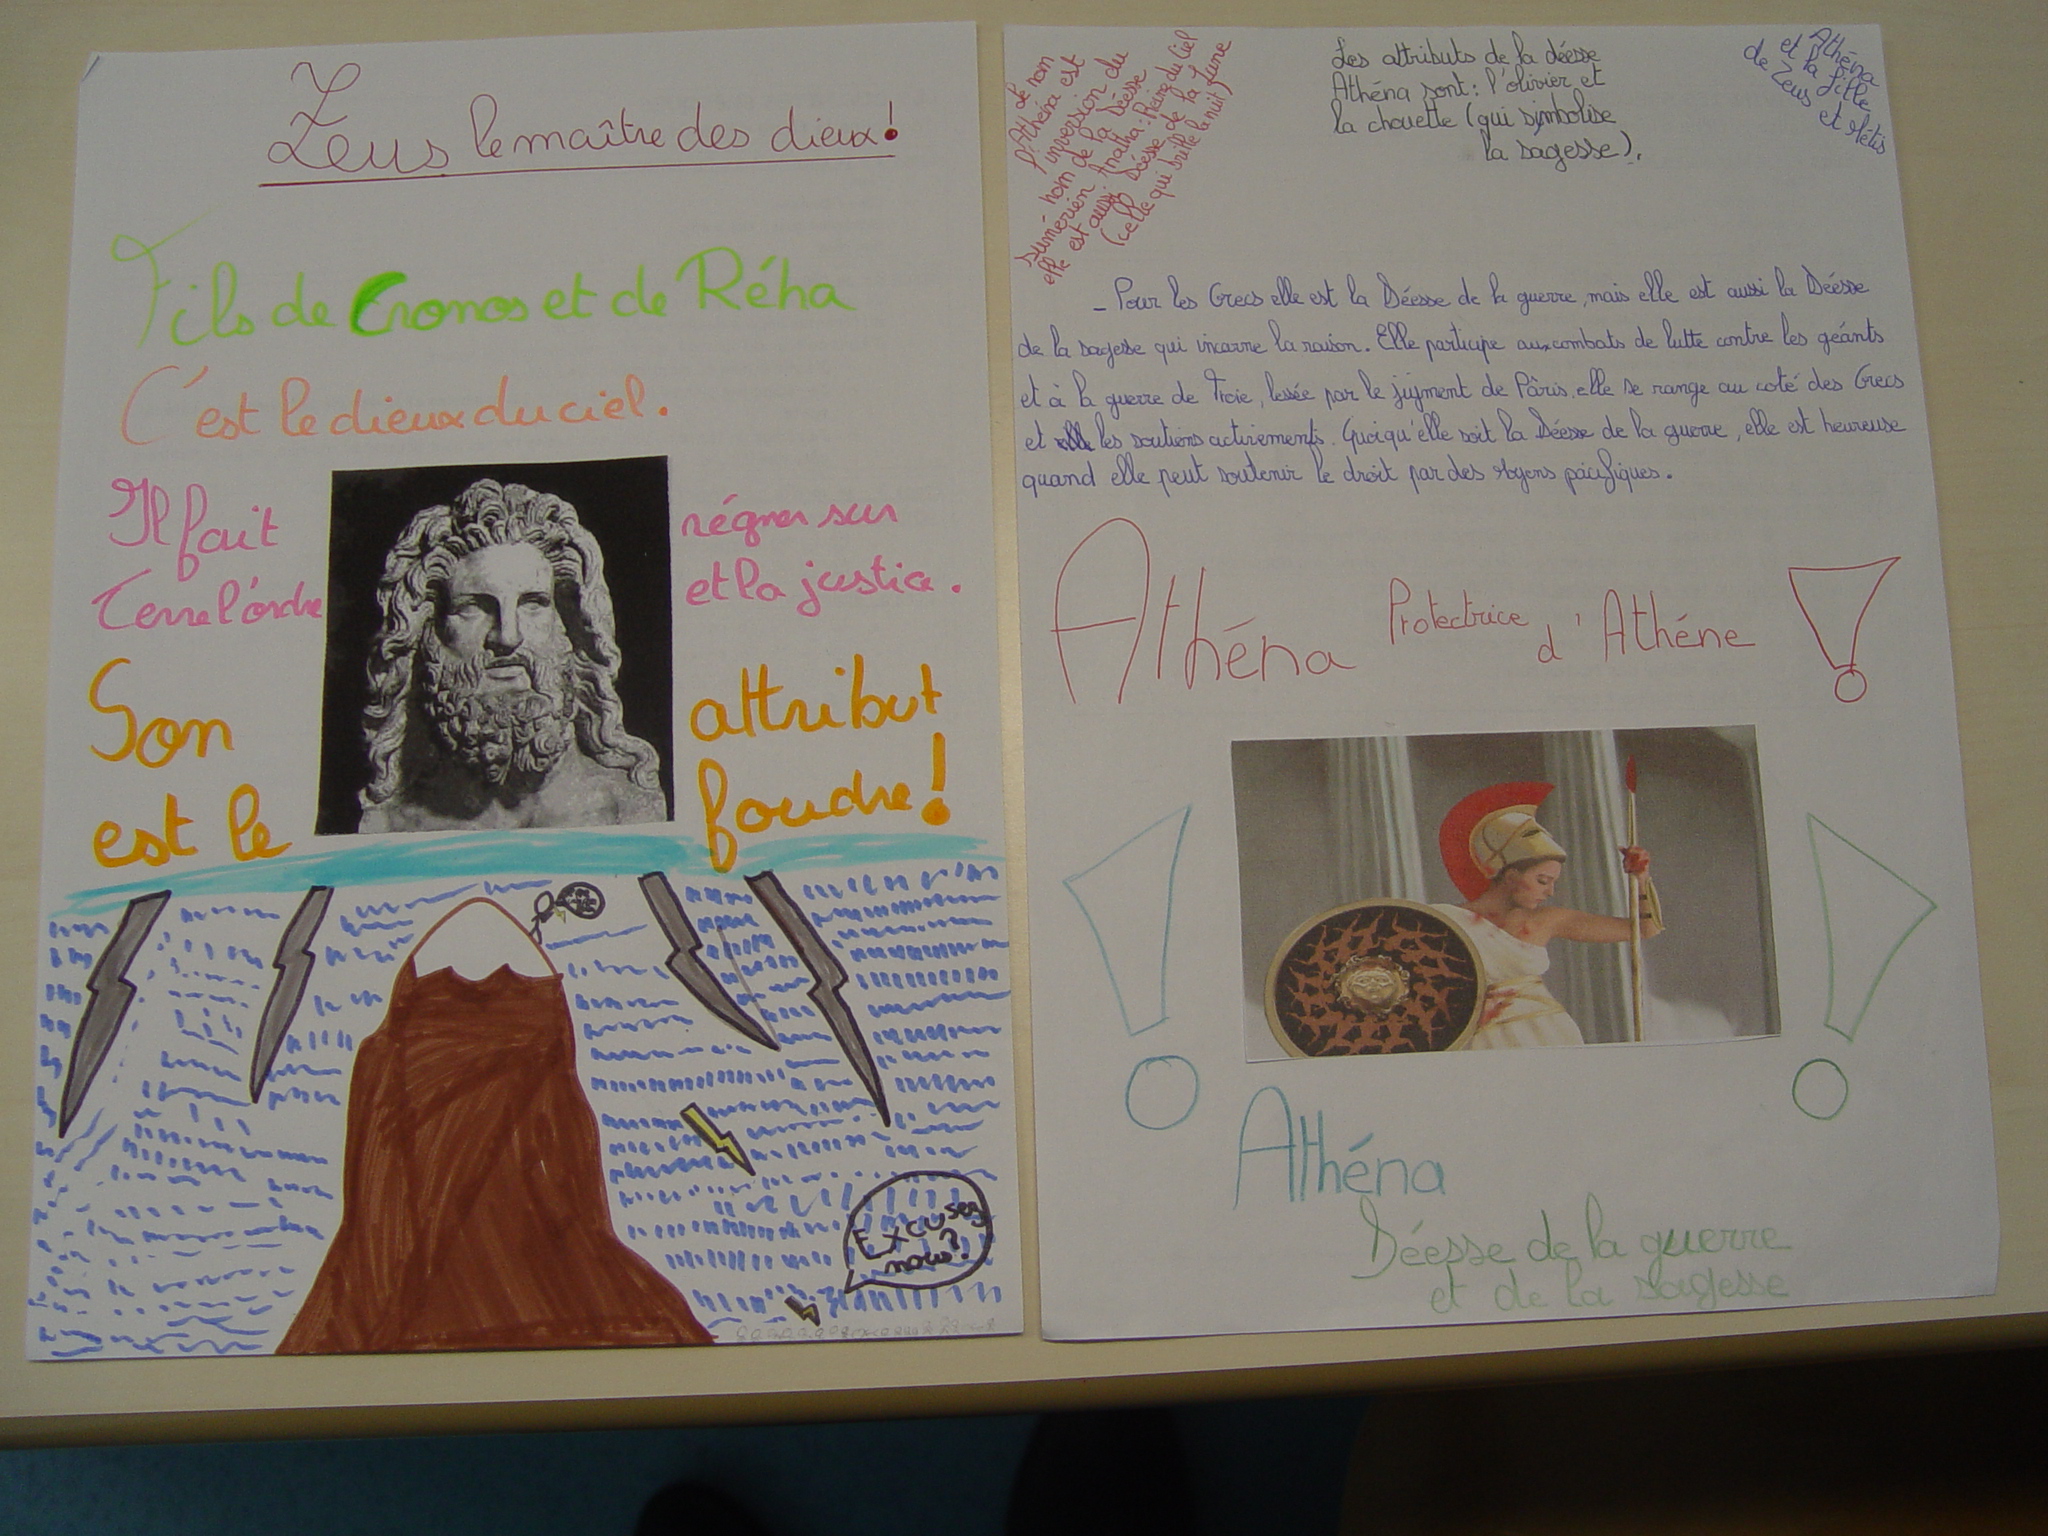 Zeus le maître des dieux!
Fils de Cronos et de Réha
C'est le dieux du ciel.
Il fait régner sur
Terre l'ordre et la justice.
Son attribut
est le foudre!
Excusez
nous?
Le nom
d'Athéna est
inversion du
nom de la Déesse
sumérien Anatha: Reine du Ciel
elle est aussi Déesse de la Lune
(celle qui brille la nuit)
Les attributs de la déesse
Athéna sont: l'olivier et
la chouette (qui simbolise
la sagesse).
Athéna
et la fille
de Zeus et Métis
- Pour les Grecs elle est la Déesse de la guerre, mais elle est aussi la Déesse
de la sagesse qui incarne la raison. Elle participe aux combats de lutte contre les géants
et à la guerre de Troie, lessée par le jugment de Pâris, elle se range au coté des Grecs
et les soutiens activements. Quoiqu'elle soit la Déesse de la guerre, elle est heureuse
quand elle peut soutenir le droit par des Moyens pacifiques.
Athéna Protectrice
d'Athéne !
! !
Athéna
Déesse de la guerre
et de la sagesse